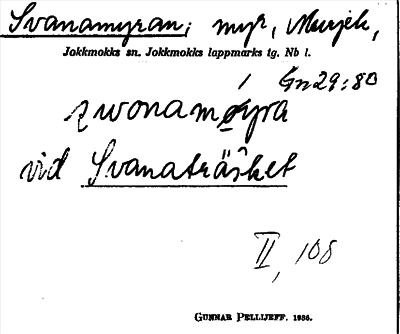 Svanamyran; myr, Murjek,
Jokkmokks sn. Jokkmokks lappmarks tg. Nb l.
Gn29:80
vid Svanaträsket
II, 108
Gunnar Pellijeff. 1936.